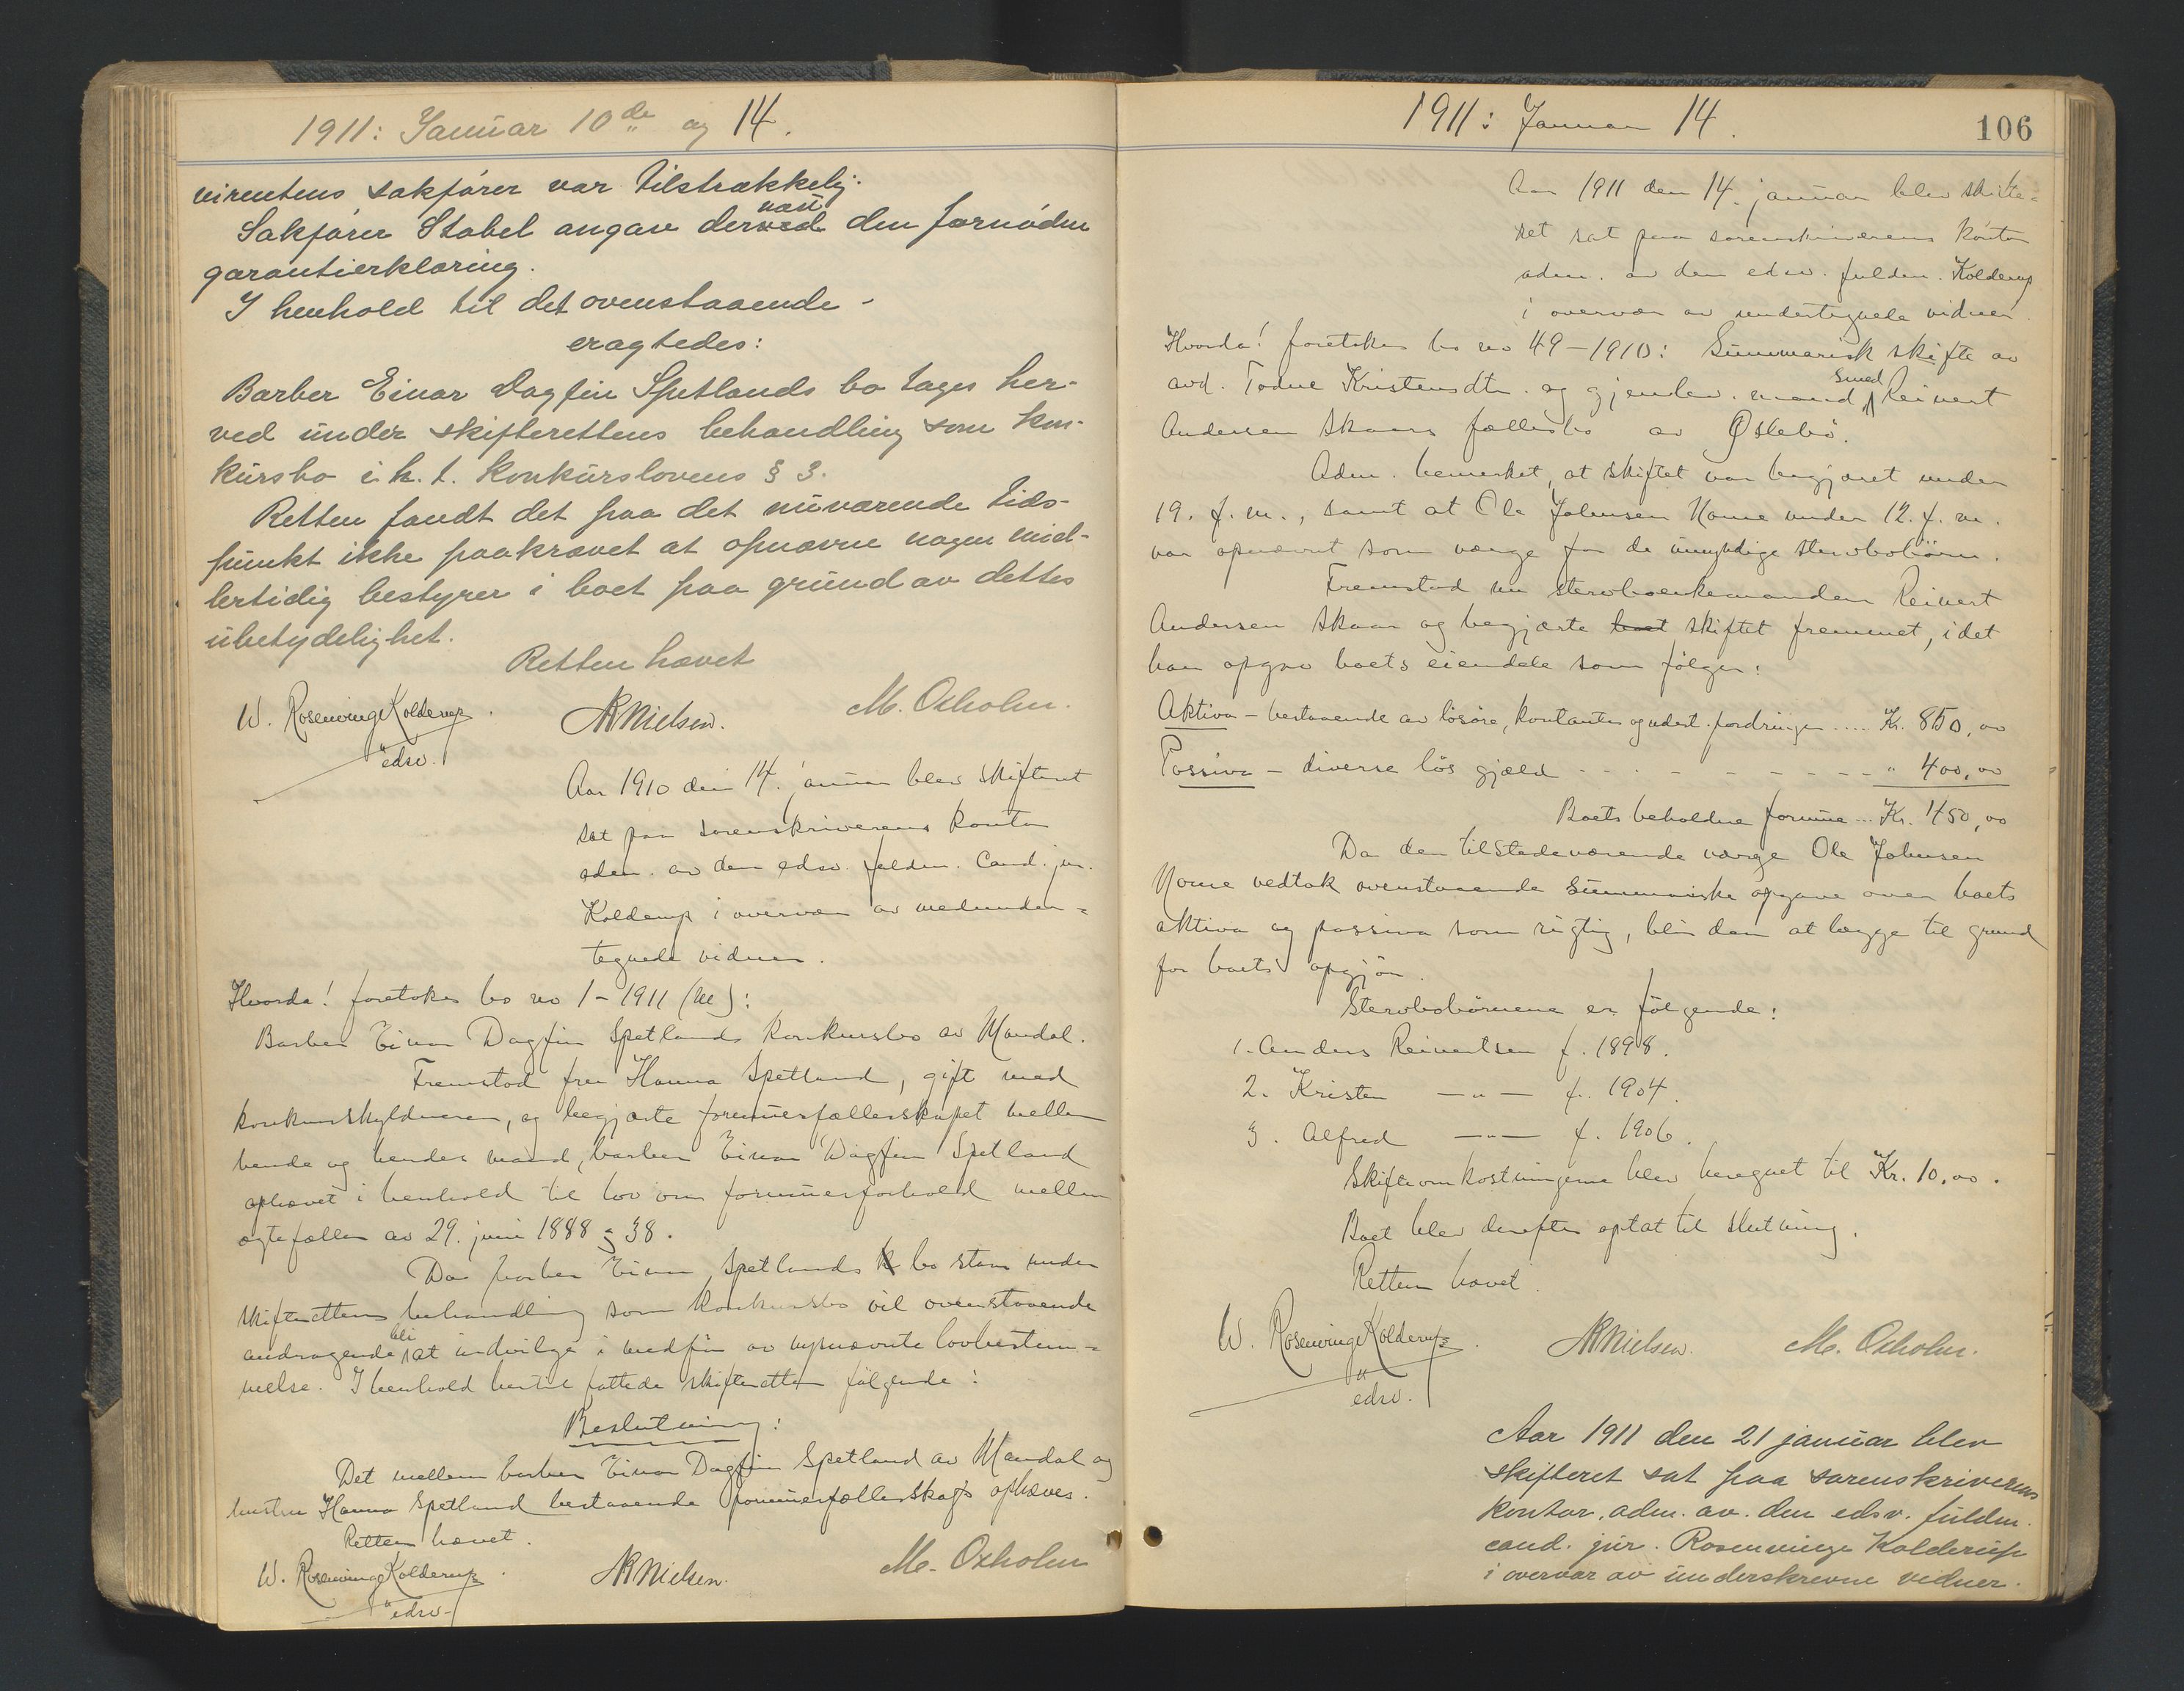 1911: Januar 10de og 14.
virentens sakfører var tilstrækkelig.
Sakfører Stabel angav derved næst den fornødne
garantierklæring.
I henhold til det ovenstaaende -
eragtedes:
Barber Einar Dagfin Spetlands bo tages her-
ved under skifterettens behandling som kon-
kursbo i h. t. konkurslovens § 3.
Retten fandt det paa det nuværende tids-
punkt ikke paakrævet at opnævne nogen mid-
lertidig bestyrer i boet paa grund av dettes
ubetydelighet.
Retten hævet
W. Rosenvinge Kolderup
edsv.
Nielsen.
M. Oxholm.
Aar 1910 den 14. januar blev skifteret
sat paa sorenskriverens kontor
adm. av den edsv. fuldm. Cand. jur.
Kolderup i overvær av medunder=
tegnede vidner.
Hvorda! foretokes bo no 1-1911 (M):
Barber Einar Dagfin Spetlands konkursbo av Mandal.
Fremstod fru Hanna Spetland, gift med
konkursskyldneren, og begjærte formuesfællesskapet mellem
hende og hendes mand, barber Einar Dagfin Spetland
ophævet i henhold til lov om formuesforhold mellem
ægtefæller av 29. juni 1888 § 38.
Da barber Einar Spetlands bo staar under
skifterettens behandling som konkursbo vil ovenstaaende
andragende bli at indvilge i medfør av nysnævnte lovbestem=
melse. I henhold hertil fattede skifteretten følgende:
Beslutning:
Det mellem barber Einar Dagfin Spetland av Mandal og
hustru Hanna Spetland bestaaende formuesfællesskap ophæves.
Retten hævet.
W. Rosenvinge Kolderup
edsv.
Nielsen.
M. Oxholm
1911: Januar 14.
106
Aar 1911 den 14. januar blev skifte=
ret sat paa sorenskriverens kontor
adm. av den edsv. fuldm. Kolderup
i overvær av undertegnede vidner.
Hvorda! foretokes bo no 49-1910: Summarisk skifte av
avd. Todne Kristensdtr. og gjenlev. mand smed Reinert
Andersen Skaars fællesbo av Øslebø.
Adm. bemerket, at skiftet var begjæret under
19. f. m., samt at Ole Johnsen Nome under 12. f. m.
var opnævnt som værge for de umyndige stervbobørn.
Fremstod nu stervboenkemanden Reinert
Andersen Skaar og begjærte boet skiftet fremmet, idet
han opgav boets eiendele som følger:
Aktiva - bestaaende av løsøre, kontanter og udest. fordringer .... Kr. 850,00
Passiva - diverse løs gjæld - - - - - - - - - - " 400,00
Boets beholdne formue ... Kr. 450,00
Da den tilstedeværende værge Ole Johnsen
Nome vedtok ovenstaaende summariske opgave over boets
aktiva og passiva som rigtig, blir den at lægge til grund
for boets opgjør.
Stervbobørnene er følgende:
1. Anders Reinertsen f. 1898.
2. Kristen —"— f. 1904.
3. Alfred —"— f. 1906.
Skifteomkostningerne blev beregnet til Kr. 10,00.
Boet blev derefter optat til slutning.
Retten hævet
W. Rosenvinge Kolderup
edsv.
Nielsen.
M. Oxholm.
Aar 1911 den 21 januar blev
skifteret sat paa sorenskriverens
kontor, adm. av. den edsv. fuldm.
cand. jur. Rosenvinge Kolderup
i overvær av underskrevne vidner.